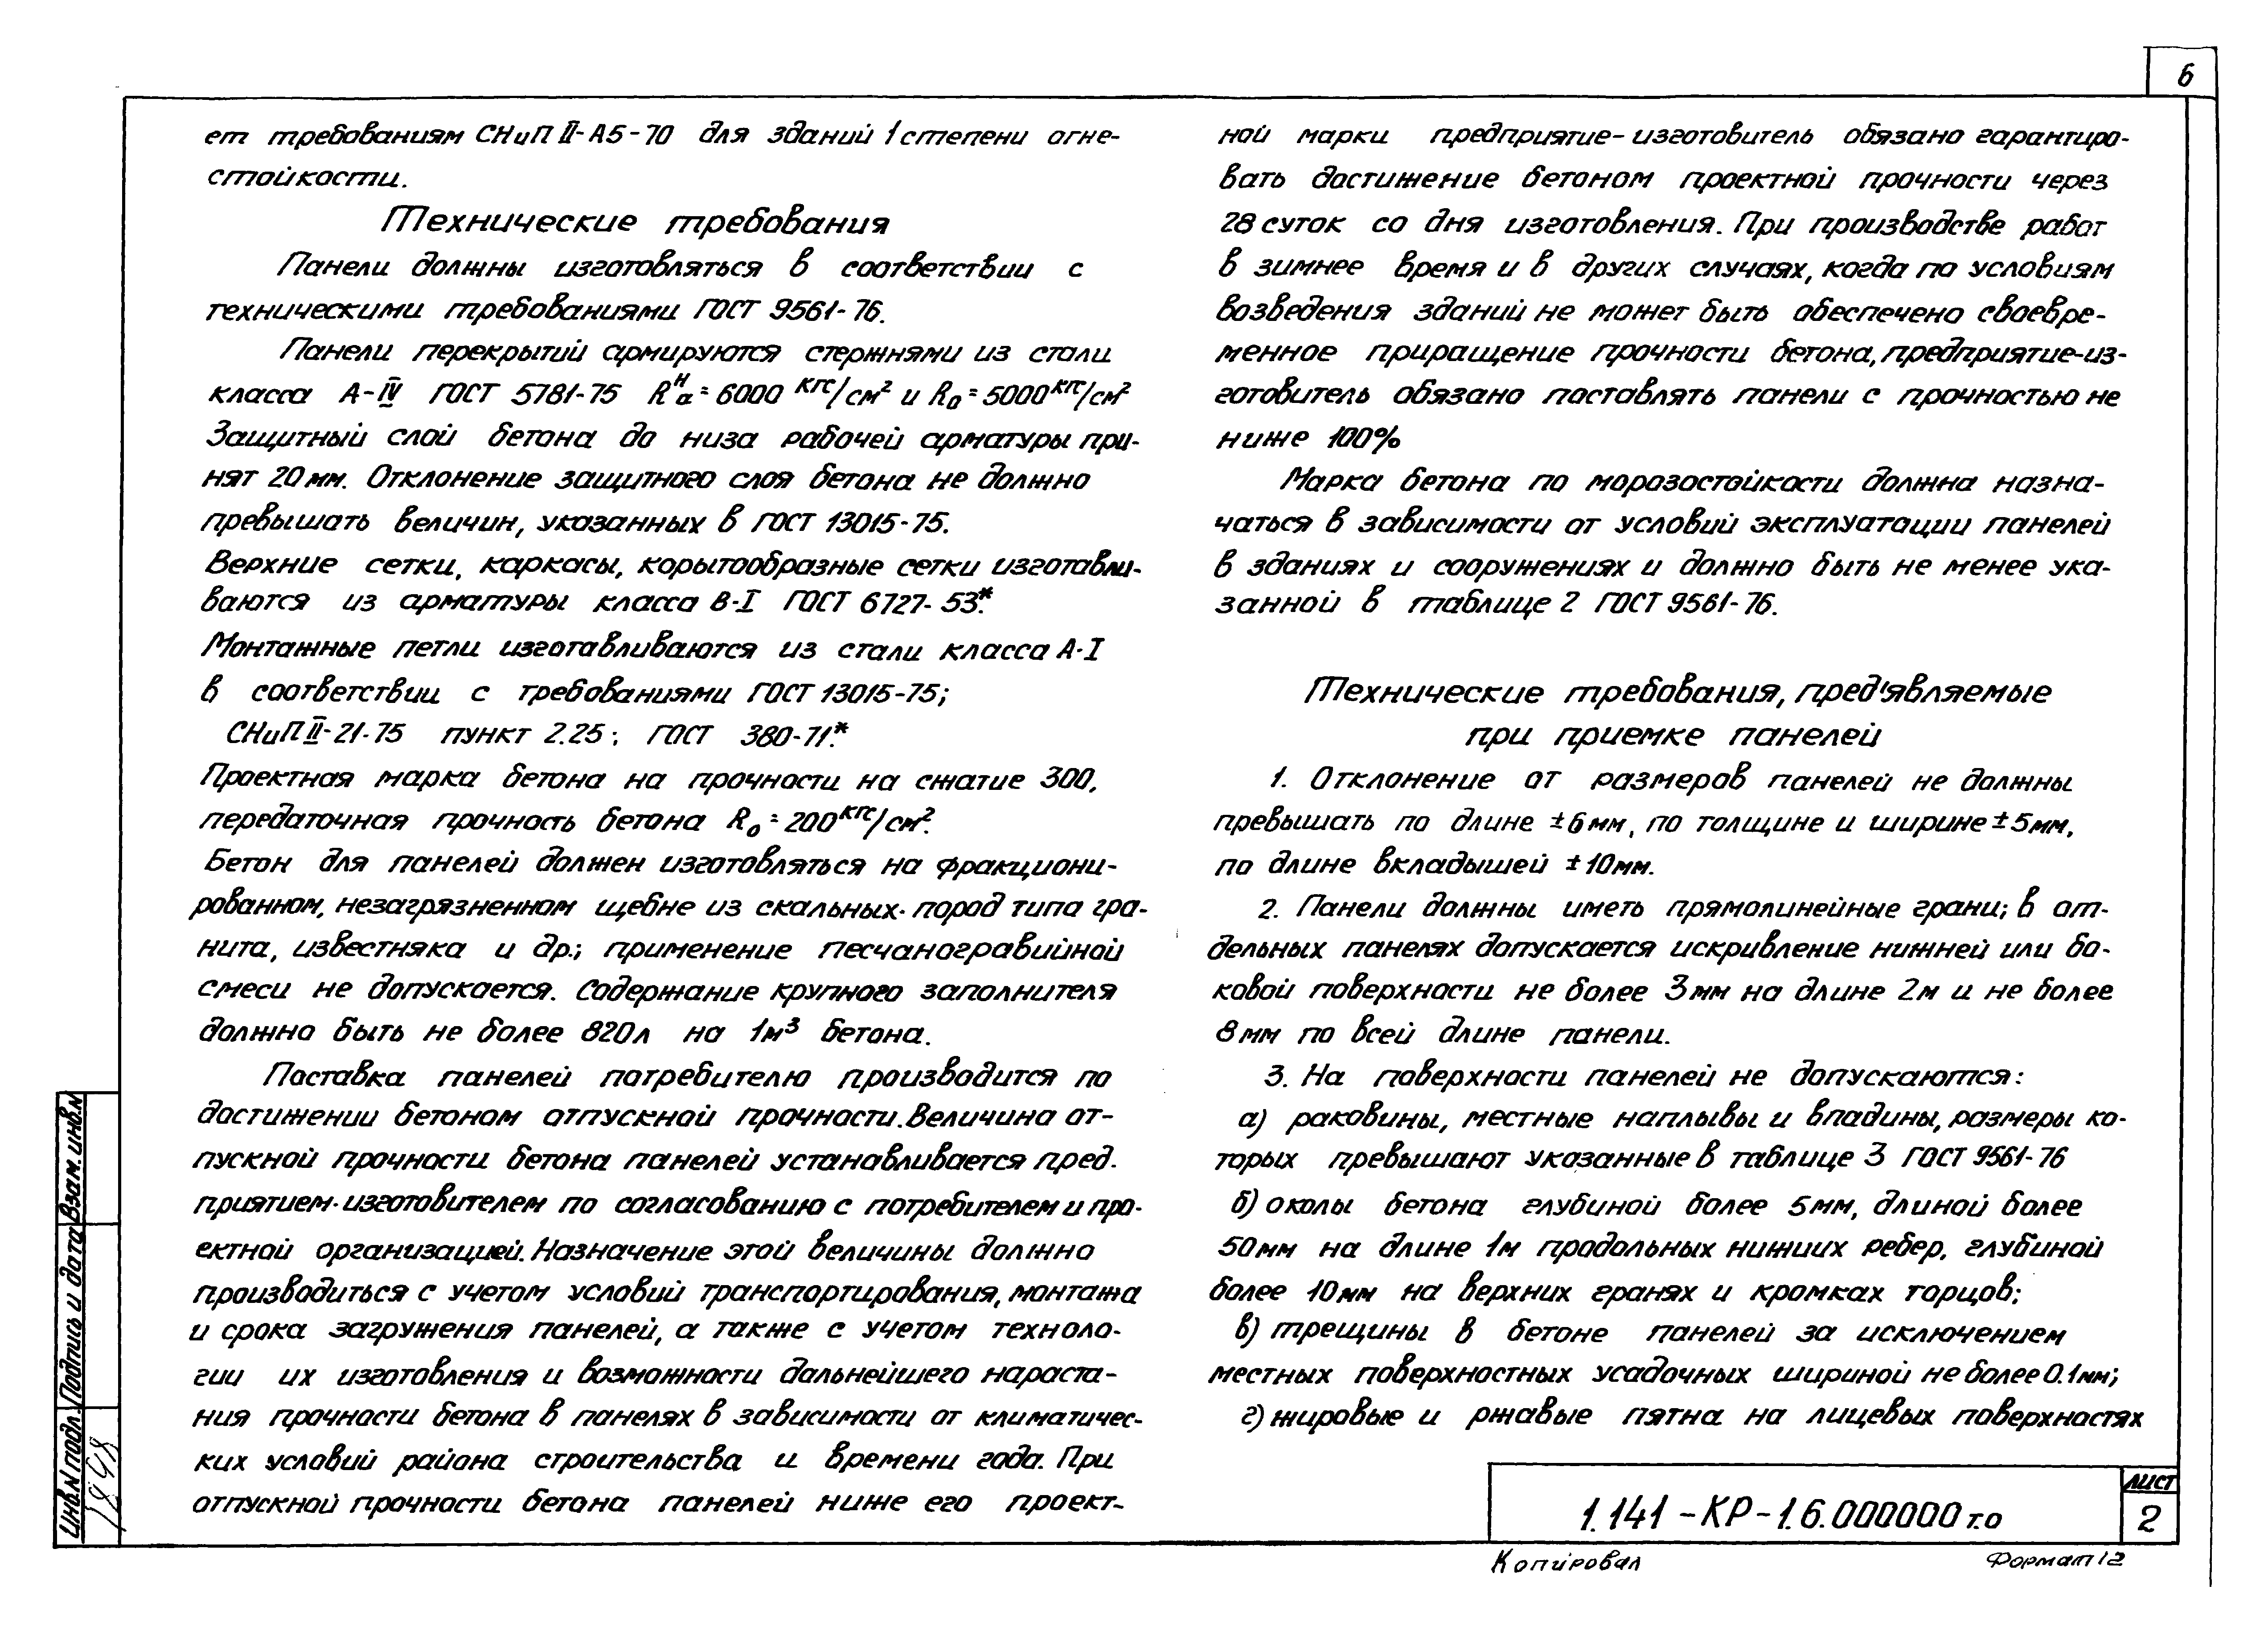 6
ет требованиям СНиП II-А5-70 для зданий 1 степени огне-
стойкости.
Технические требования
Панели должны изготовляться в соответствии с
техническими требованиями ГОСТ 9561-76.
Панели перекрытий армируются стержнями из стали
класса А-IV ГОСТ 5781-75 Rᴴₐ=6000 кгс/см² и R₀=5000 кгс/см²
Защитный слой бетона до низа рабочей арматуры при-
нят 20мм. Отклонение защитного слоя бетона не должно
превышать величин, указанных в ГОСТ 13015-75.
Верхние сетки, каркасы, корытообразные сетки изготавли-
ваются из арматуры класса В-I ГОСТ 6727-53*.
Монтажные петли изготавливаются из стали класса А-I
в соответствии с требованиями ГОСТ 13015-75;
СНиП II-21-75 пункт 2.25; ГОСТ 380-71*.
Проектная марка бетона на прочности на сжатие 300,
передаточная прочность бетона R₀=200 кгс/см².
Бетон для панелей должен изготовляться на фракциони-
рованном, незагрязненном щебне из скальных пород типа гра-
нита, известняка и др.; применение песчаногравийной
смеси не допускается. Содержание крупного заполнителя
должно быть не более 820л на 1м³ бетона.
Поставка панелей потребителю производится по
достижении бетоном отпускной прочности. Величина от-
пускной прочности бетона панелей устанавливается пред-
приятием-изготовителем по согласованию с потребителем и про-
ектной организацией. Назначение этой величины должно
производиться с учетом условий транспортирования, монтажа
и срока загружения панелей, а также с учетом техноло-
гии их изготовления и возможности дальнейшего нараста-
ния прочности бетона в панелях в зависимости от климатичес-
ких условий района строительства и времени года. При
отпускной прочности бетона панелей ниже его проект-
ной марки предприятие-изготовитель обязано гарантиро-
вать достижение бетоном проектной прочности через
28 суток со дня изготовления. При производстве работ
в зимнее время и в других случаях, когда по условиям
возведения зданий не может быть обеспечено своевре-
менное приращение прочности бетона, предприятие-из-
готовитель обязано поставлять панели с прочностью не
ниже 100%
Марка бетона по морозостойкости должна назна-
чаться в зависимости от условий эксплуатации панелей
в зданиях и сооружениях и должно быть не менее ука-
занной в таблице 2 ГОСТ 9561-76.
Технические требования, пред'являемые
при приемке панелей
1. Отклонение от размеров панелей не должны
превышать по длине ±6мм, по толщине и ширине ±5мм,
по длине вкладышей ±10мм.
2. Панели должны иметь прямолинейные грани; в от-
дельных панелях допускается искривление нижней или бо-
ковой поверхности не более 3мм на длине 2м и не более
8мм по всей длине панели.
3. На поверхности панелей не допускаются:
а) раковины, местные наплывы и впадины, размеры ко-
торых превышают указанные в таблице 3 ГОСТ 9561-76
б) околы бетона глубиной более 5мм, длиной более
50мм на длине 1м продольных нижних ребер, глубиной
более 10мм на верхних гранях и кромках торцов;
в) трещины в бетоне панелей за исключением
местных поверхностных усадочных шириной не более 0.1мм;
г) жировые и ржавые пятна на лицевых поверхностях
Взам. инв.N
Подпись и дата
Инв.N подл.
1.141-КР-1.6.000000 т.о
ЛИСТ
2
Копировал
Формат 12